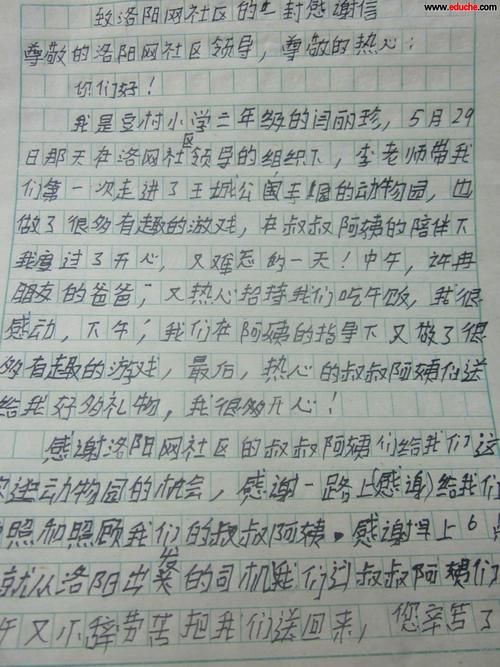 www.eduche.com
致洛阳网社区的一封感谢信
尊敬的洛阳网社区领导，尊敬的热心：
你们好！
我是宣村小学二年级的闫丽珍，5月29
日那天在洛网社区领导的组织下，李老师带我
们第一次走进了王城公园的动物园，也
做了很多有趣的游戏，在叔叔阿姨的陪伴下
我度过了开心，又难忘的一天！中午，
朋友的爸爸，又热心招待我们吃午饭，我很
感动，下午，我们在阿姨的指导下又做了很
多有趣的游戏，最后，热心的叔叔阿姨们送
给我好多礼物，我很多开心！
感谢洛阳网社区的叔叔阿姨们给我们这
进动物园的机会，感谢一路上(感谢)给我们
照和照顾我们的叔叔阿姨。感谢早上6
就从洛阳出发的司机我们 叔叔阿姨们
午又不辞劳苦把我们送回来，您辛苦了